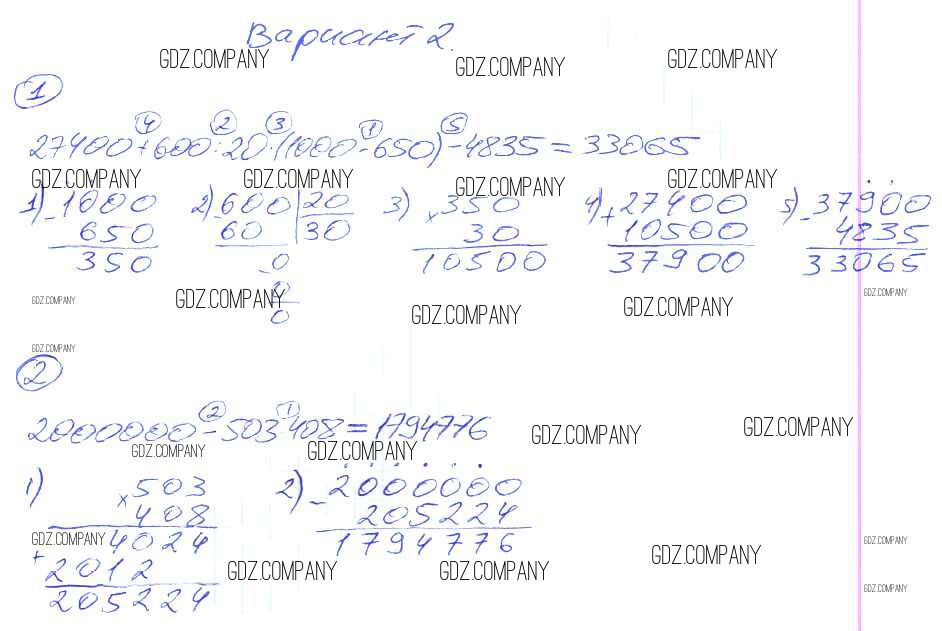 Вариант 2.
GDZ.COMPANY GDZ.COMPANY GDZ.COMPANY
1
4 2 3 1 5
27400+600:20·(1000-650)-4835=33065
GDZ.COMPANY GDZ.COMPANY GDZ.COMPANY GDZ.COMPANY
1) -1000 2) -600 20 3) ×350 4) +27400 5) -37900
650 60 30 30 10500 4835
350 -0 10500 37900 33065
0
0
GDZ.COMPANY GDZ.COMPANY GDZ.COMPANY GDZ.COMPANY GDZ.COMPANY
GDZ.COMPANY
2
2 1
2000000-503·408=1794776
GDZ.COMPANY GDZ.COMPANY GDZ.COMPANY GDZ.COMPANY
1) ×503 2) -2000000
408 205224
4024 1794776
+2012
205224
GDZ.COMPANY GDZ.COMPANY GDZ.COMPANY GDZ.COMPANY GDZ.COMPANY GDZ.COMPANY